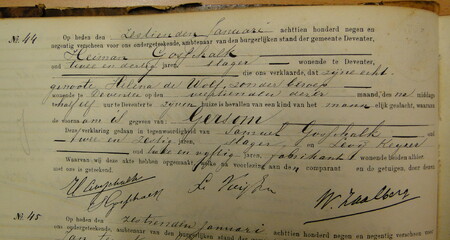 №. 44
Op heden den zestienden Januari achttien honderd negen en
negentig verscheen voor ons ondergeteekende, ambtenaar van den burgerlijken stand der gemeente Deventer,
Heiman Gosschalk
oud twee en dertig jaren, slager wonende te Deventer,
die ons verklaarde, dat zijne echt-
genoote Helena de Wolf, zonder beroep
wonende te Deventer op den dezer maand, des na middags
half uur te Deventer te zijnen huize is bevallen van een kind van het mannelijk geslacht, waaraan
de voornaam is gegeven van Gerson
Deze verklaring gedaan in tegenwoordigheid van Samuel Gosschalk
oud twee en zestig jaren, slager en Levi Keijser
oud en vijftig jaren, fabrikant wonende binnen alhier
Waarvan wij deze akte hebben opgemaakt, welke na voorlezing aan de comparant en de getuigen, door dezen
met ons is geteekend.
H Gosschalk
S Gosschalk
L. Keijzer
W. Zaalberg
№. 45
Op heden den zestienden Januari
achttien honderd negen en
negentig verscheen voor
ons ondergeteekende, ambtenaar van den burgerlijken stand